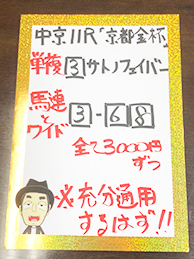 中京11R「京都金杯」
単複③サトノフェイバー
馬連とワイド ③-⑥⑧
全て3000円ずつ
※充分通用
するはず!!